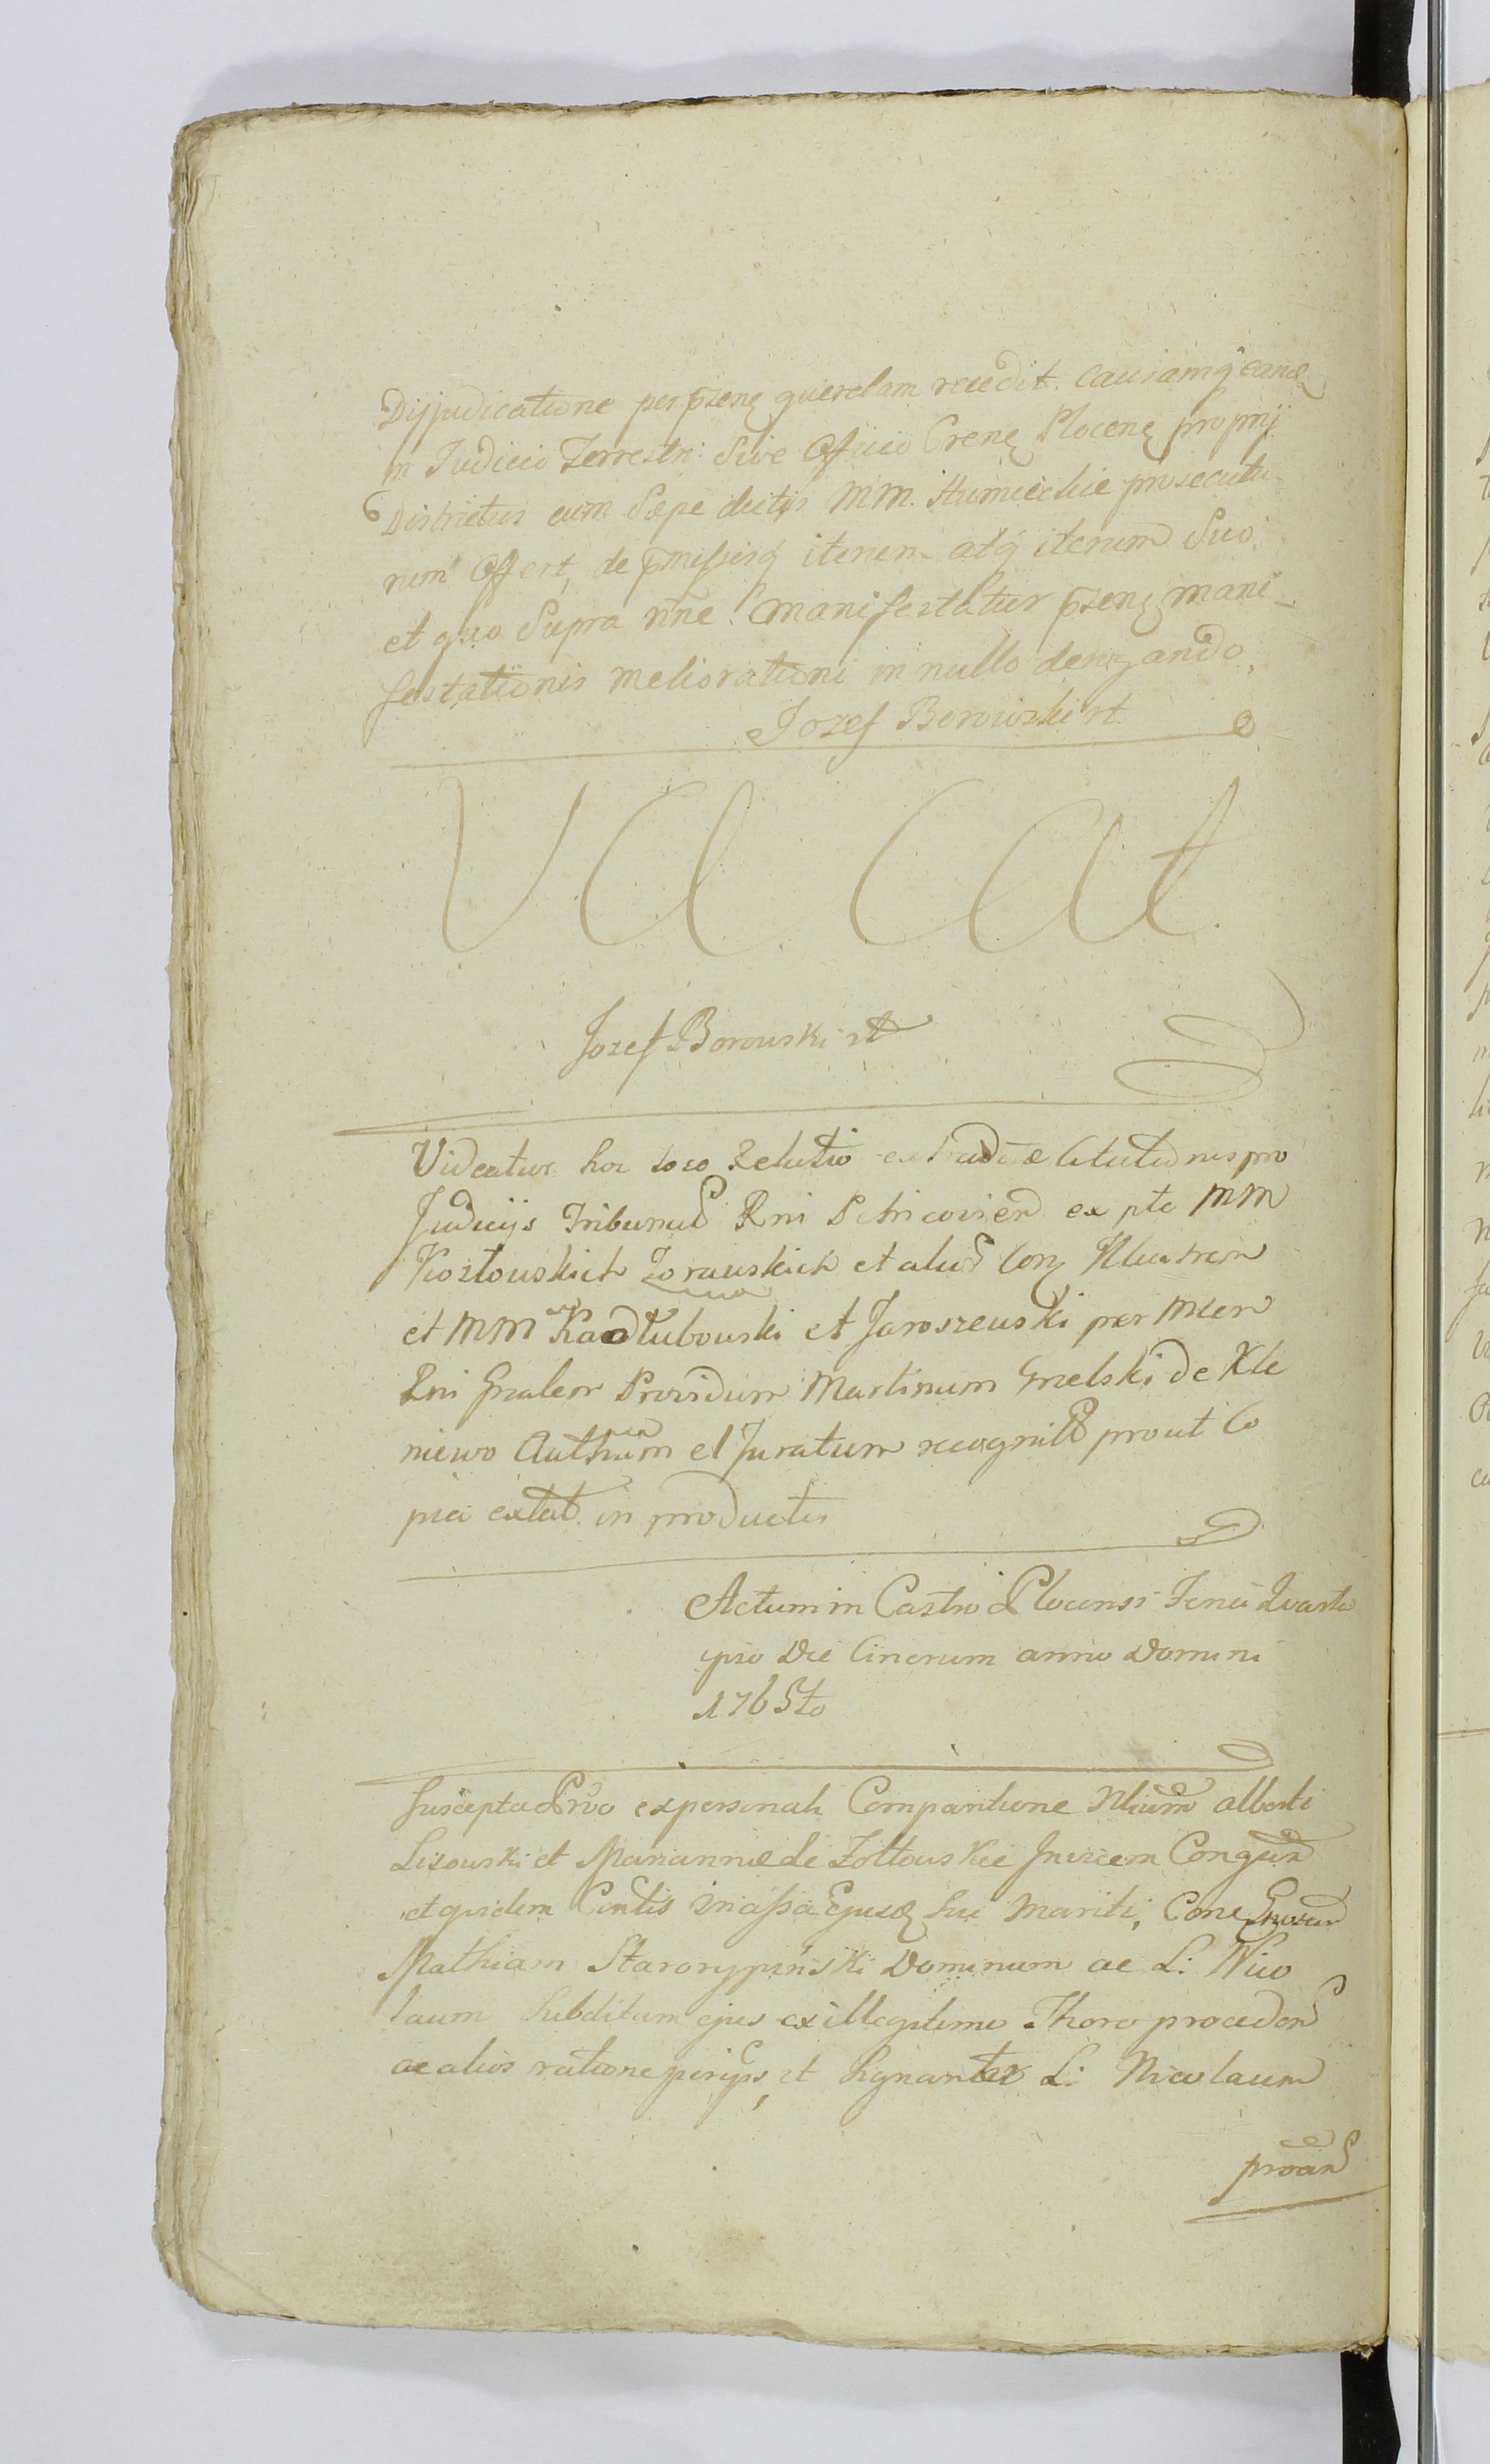 Dijudicatione per pzens querelam recedit. Causamq eand
in Judicio Terrestri Sive Officio Crens Plocens proprij
Districtus cum Sæpe dictis MM. Humieckie prosecutu-
rum Offert, de pmissisq iterum atq iterum Suo
et quo Supra nne manifestatur pzens mani-
festationis meliorationi in nullo derogando
Jozef Borowski rt
Va Cat
Jozef Borowski rt
Videatur hoc loco Relatio extraditæ Citationis pro
Judicijs Tribunal Rni Petricovien ex pte MM
Kozłowskich Zorawskich et alior Con Illustrem
et MM Kadłubowski et Jaroszewski per Mlem
Rni Gnalem Providum Martinum de Kle
niewo Authum et Juratum recognit prout Co
pia extat in productis
Actum in Castro Plocensi Feria Quarta
ipso Die Cinerum anno Domini
1765to
Suscepta Prvo ex personali Comparitione Nlium Alberti
Lisowski et Mariannæ de Zołtowskie Invicem Conjgum
et quidem Cintis in assa Ejusd Sui Mariti, Cone Gnosum
Mathiam Starorypinski Dominum ac L: Nico
laum Subditum ejus ex illegitimo Thoro proceden
ac alios ratione et Signanter L: Nicolaum